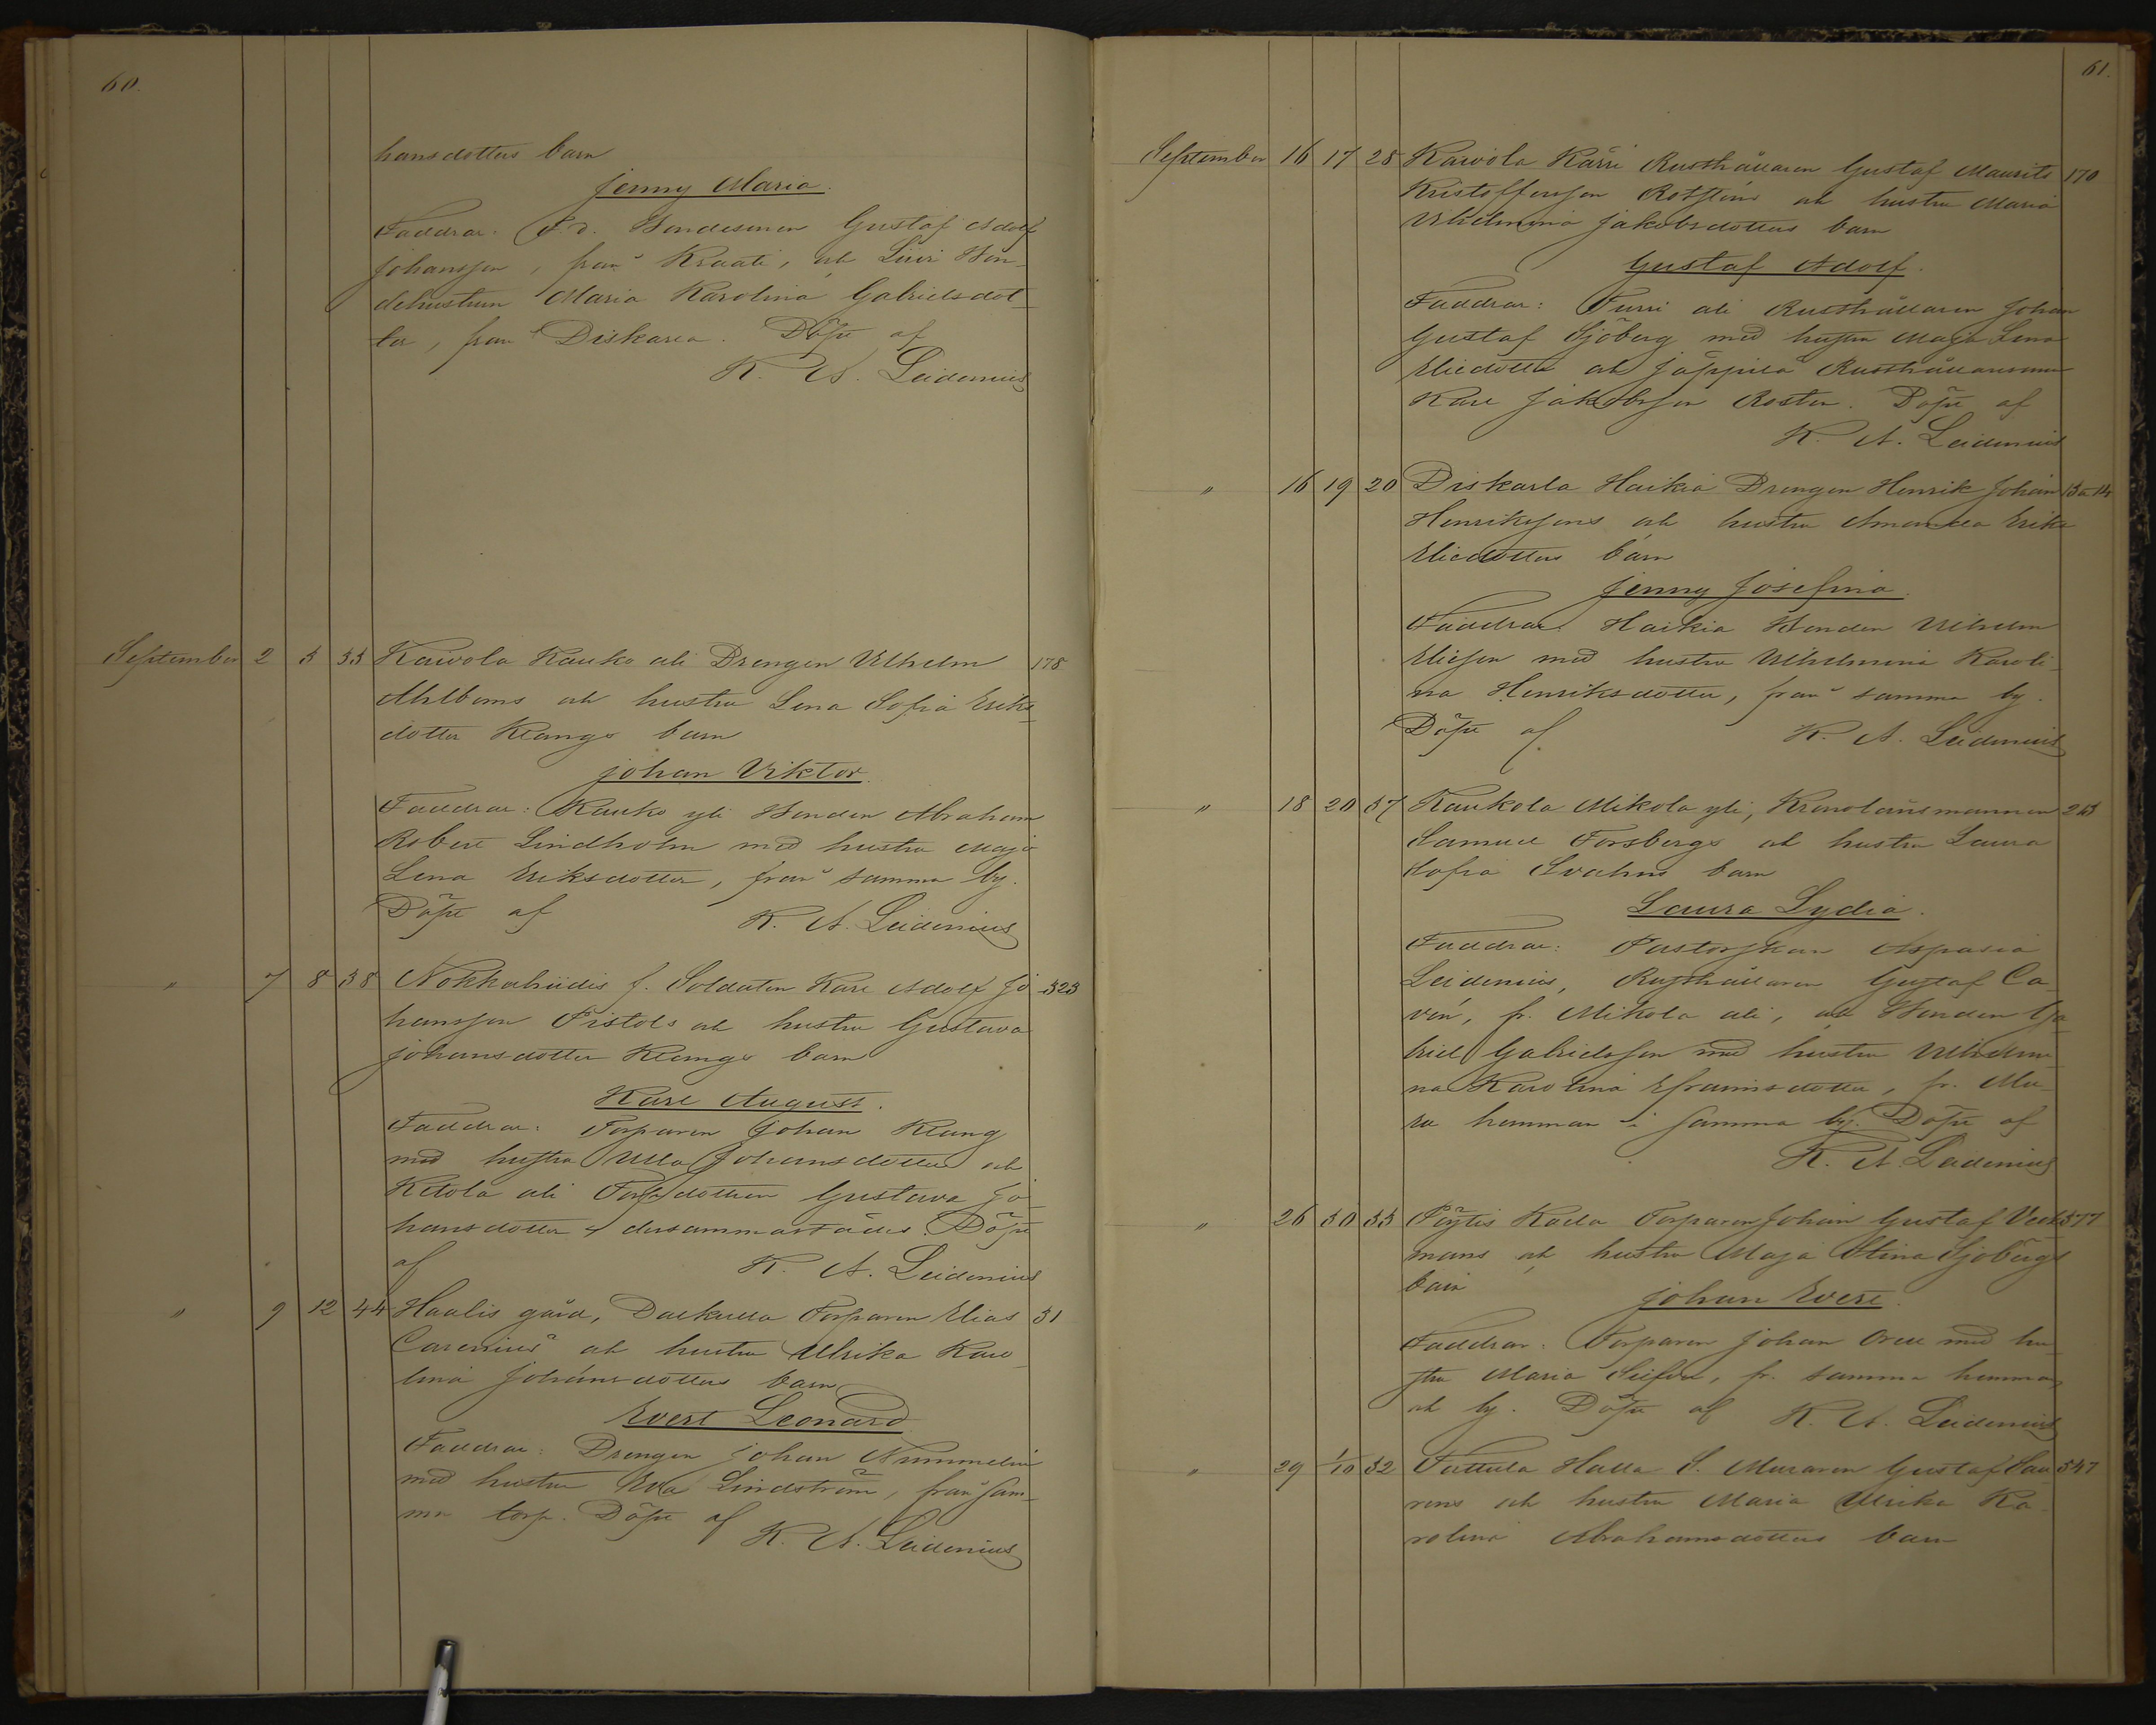 60.
hansdotters barn
Jenny Maria.
Faddrar: F. d. Bondesonen Gustaf Adolf
Johansson, från Kraati, och Liivi Bon-
dehustrun Maria Karolina Gabrielsdot-
ter, från Diskarla. Döpt af
K. A. Leidenius
September 2 3 33 Kaivola Kauko ali Drengen Vilhelm 178
Ahlboms och hustru Lena Sofia Eriks-
dotter Klangs barn
Johan Viktor.
Faddrar: Kauko yli Bonden Abraham
Robert Lindholm med hustru Maja
Lena Eriksdotter, från samma by.
Döpt af K. A. Leidenius
" 7 8 38 Nokkahiidis f. Soldaten Karl Adolf Jo- 323
hansson Pistols och hustru Gustava
Johansdotter Klangs barn
Karl August.
Faddrar: Torparen Johan Klang
med hustru Ulla Johansdotter och
Ketola ali Torpdottren Gustava Jo-
hansdotter dersammastädes. Döpt
af K. A. Leidenius
" 9 12 44 Haalis gård, Dalkulla Torparen Elias 31
Carenius och hustru Ulrika Karo-
lina Johansdotters barn
Evert Leonard
Faddrar: Drengen Johan Nummelin
med hustru Eva Lindström, från sam-
ma torp. Döpt af
K. A. Leidenius
61.
September 16 17 28 Kaivola Kärri Rusthållaren Gustaf Maurits 170
Kristoffersson Rotsténs och hustru Maria
Vilhelmina Jakobsdotters barn
Gustaf Adolf.
Faddrar: Furri ali Rusthållaren Johan
Gustaf Sjöberg med hustru Maja Lena
Eliedotter och Jäppilä Rusthållaresonen
Karl Jakobsson Rosten. Döpt af
K. A. Leidenius
" 16 19 20 Diskarla Haikia Drengen Henrik Johan
Henrikssons och hustru Amanda Erika
Eliedotters barn
Jenny Josefina.
Faddrar: Haikia Bonden Vilhelm
Eliesson med hustru Vilhelmina Karoli-
na Henriksdotter, från samma by.
Döpt af K. A. Leidenius
" 18 20 37 Kaukola Mikola yli, Kronolänsmannen
Samuel Forsbergs och hustru Laura
Sofia Svahns barn
Laura Lydia.
Faddrar: Pastorskan Aspasia
Leidenius, Rusthållaren Gustaf Ca-
vén, fr. Mikola ali, och Bonden Ga-
briel Gabrielsson med hustru Vilhelmi-
na Karolina Efraimsdotter, fr. Ma-
ra hemman i samma by. Döpt af
K. A. Leidenius
" 26 30 33 Pöytis Kada Torparen Johan Gustaf Vest- 377
mans och hustru Maja Stina Sjöbergs
barn
Johan Evert.
Faddrar: Torparen Johan Orell med hu-
stru Maria fr. samma hemman
och by. Döpt af K. A. Leidenius
" 29 1/10 32 Tuttula Halla S. Muraren Gustaf Sau- 547
rens och hustru Maria Ulrika Ka-
rolina Abrahamsdotters barn